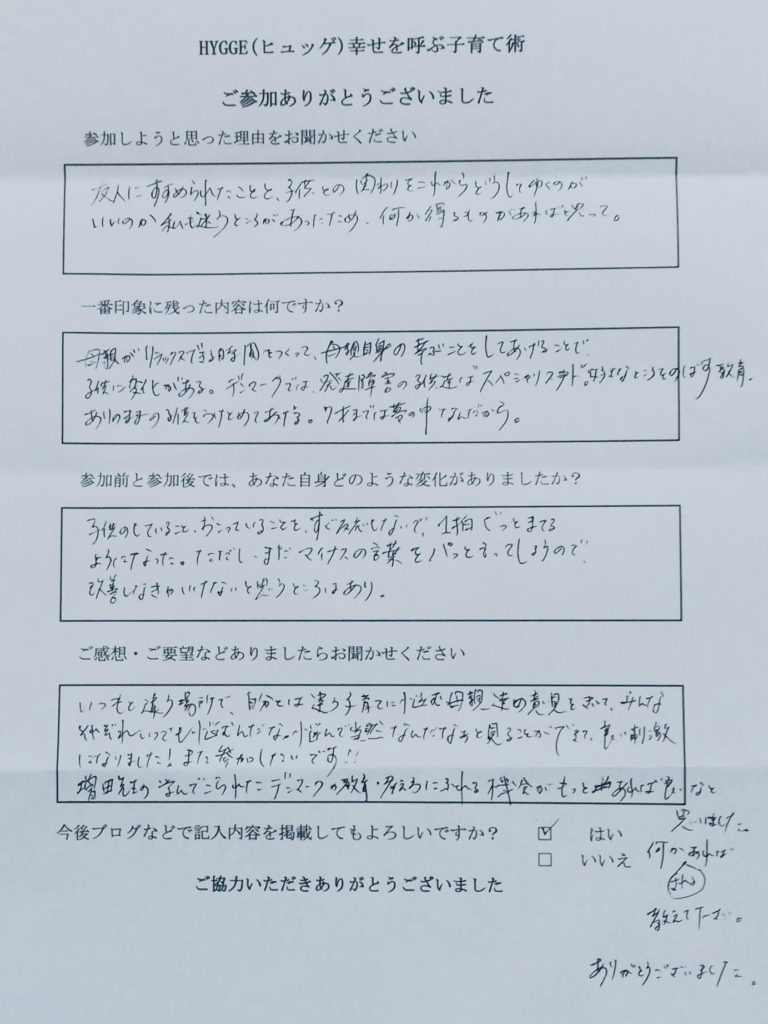 HYGGE(ヒュッゲ)幸せを呼ぶ子育て術
ご参加ありがとうございました
参加しようと思った理由をお聞かせください
友人にすすめられたことと、子供との関わりをこれからどうしてゆくのが
いいのか私も迷うところがあったため、何か得るものがあればと思って。
一番印象に残った内容は何ですか？
母親がリラックスできる時間をつくって、母親自身の喜ぶことをしてあげることで
子供に変化がある。デンマークでは、発達障害の子供達はスペシャリスト。好きなところをのばす教育。
ありのままの子供をうけとめてあげる。7才までは夢の中なんだから。
参加前と参加後では、あなた自身どのような変化がありましたか？
子供のしていること、おこっていることを、すぐ反応しないで、1拍ぐっとまてる
ようになった。ただし、まだマイナスの言葉をパッと言ってしまうので、
改善しなきゃいけないと思うところはあり。
ご感想・ご要望などありましたらお聞かせください
いつもと違う場所で、自分とは違う子育てに悩む母親達の意見をきいて、みんな
それぞれいつでも悩むんだな。悩んで当然なんだなぁと見ることができて、良い刺激
になりました！また参加したいです！！
増田先生の学んでこられたデンマークの教育・考え方にふれる機会がもっとあれば良いなと
思いました。
今後ブログなどで記入内容を掲載してもよろしいですか？
☑ はい
□ いいえ
何かあれば
教えて下さい。
ご協力いただきありがとうございました
ありがとうございました。